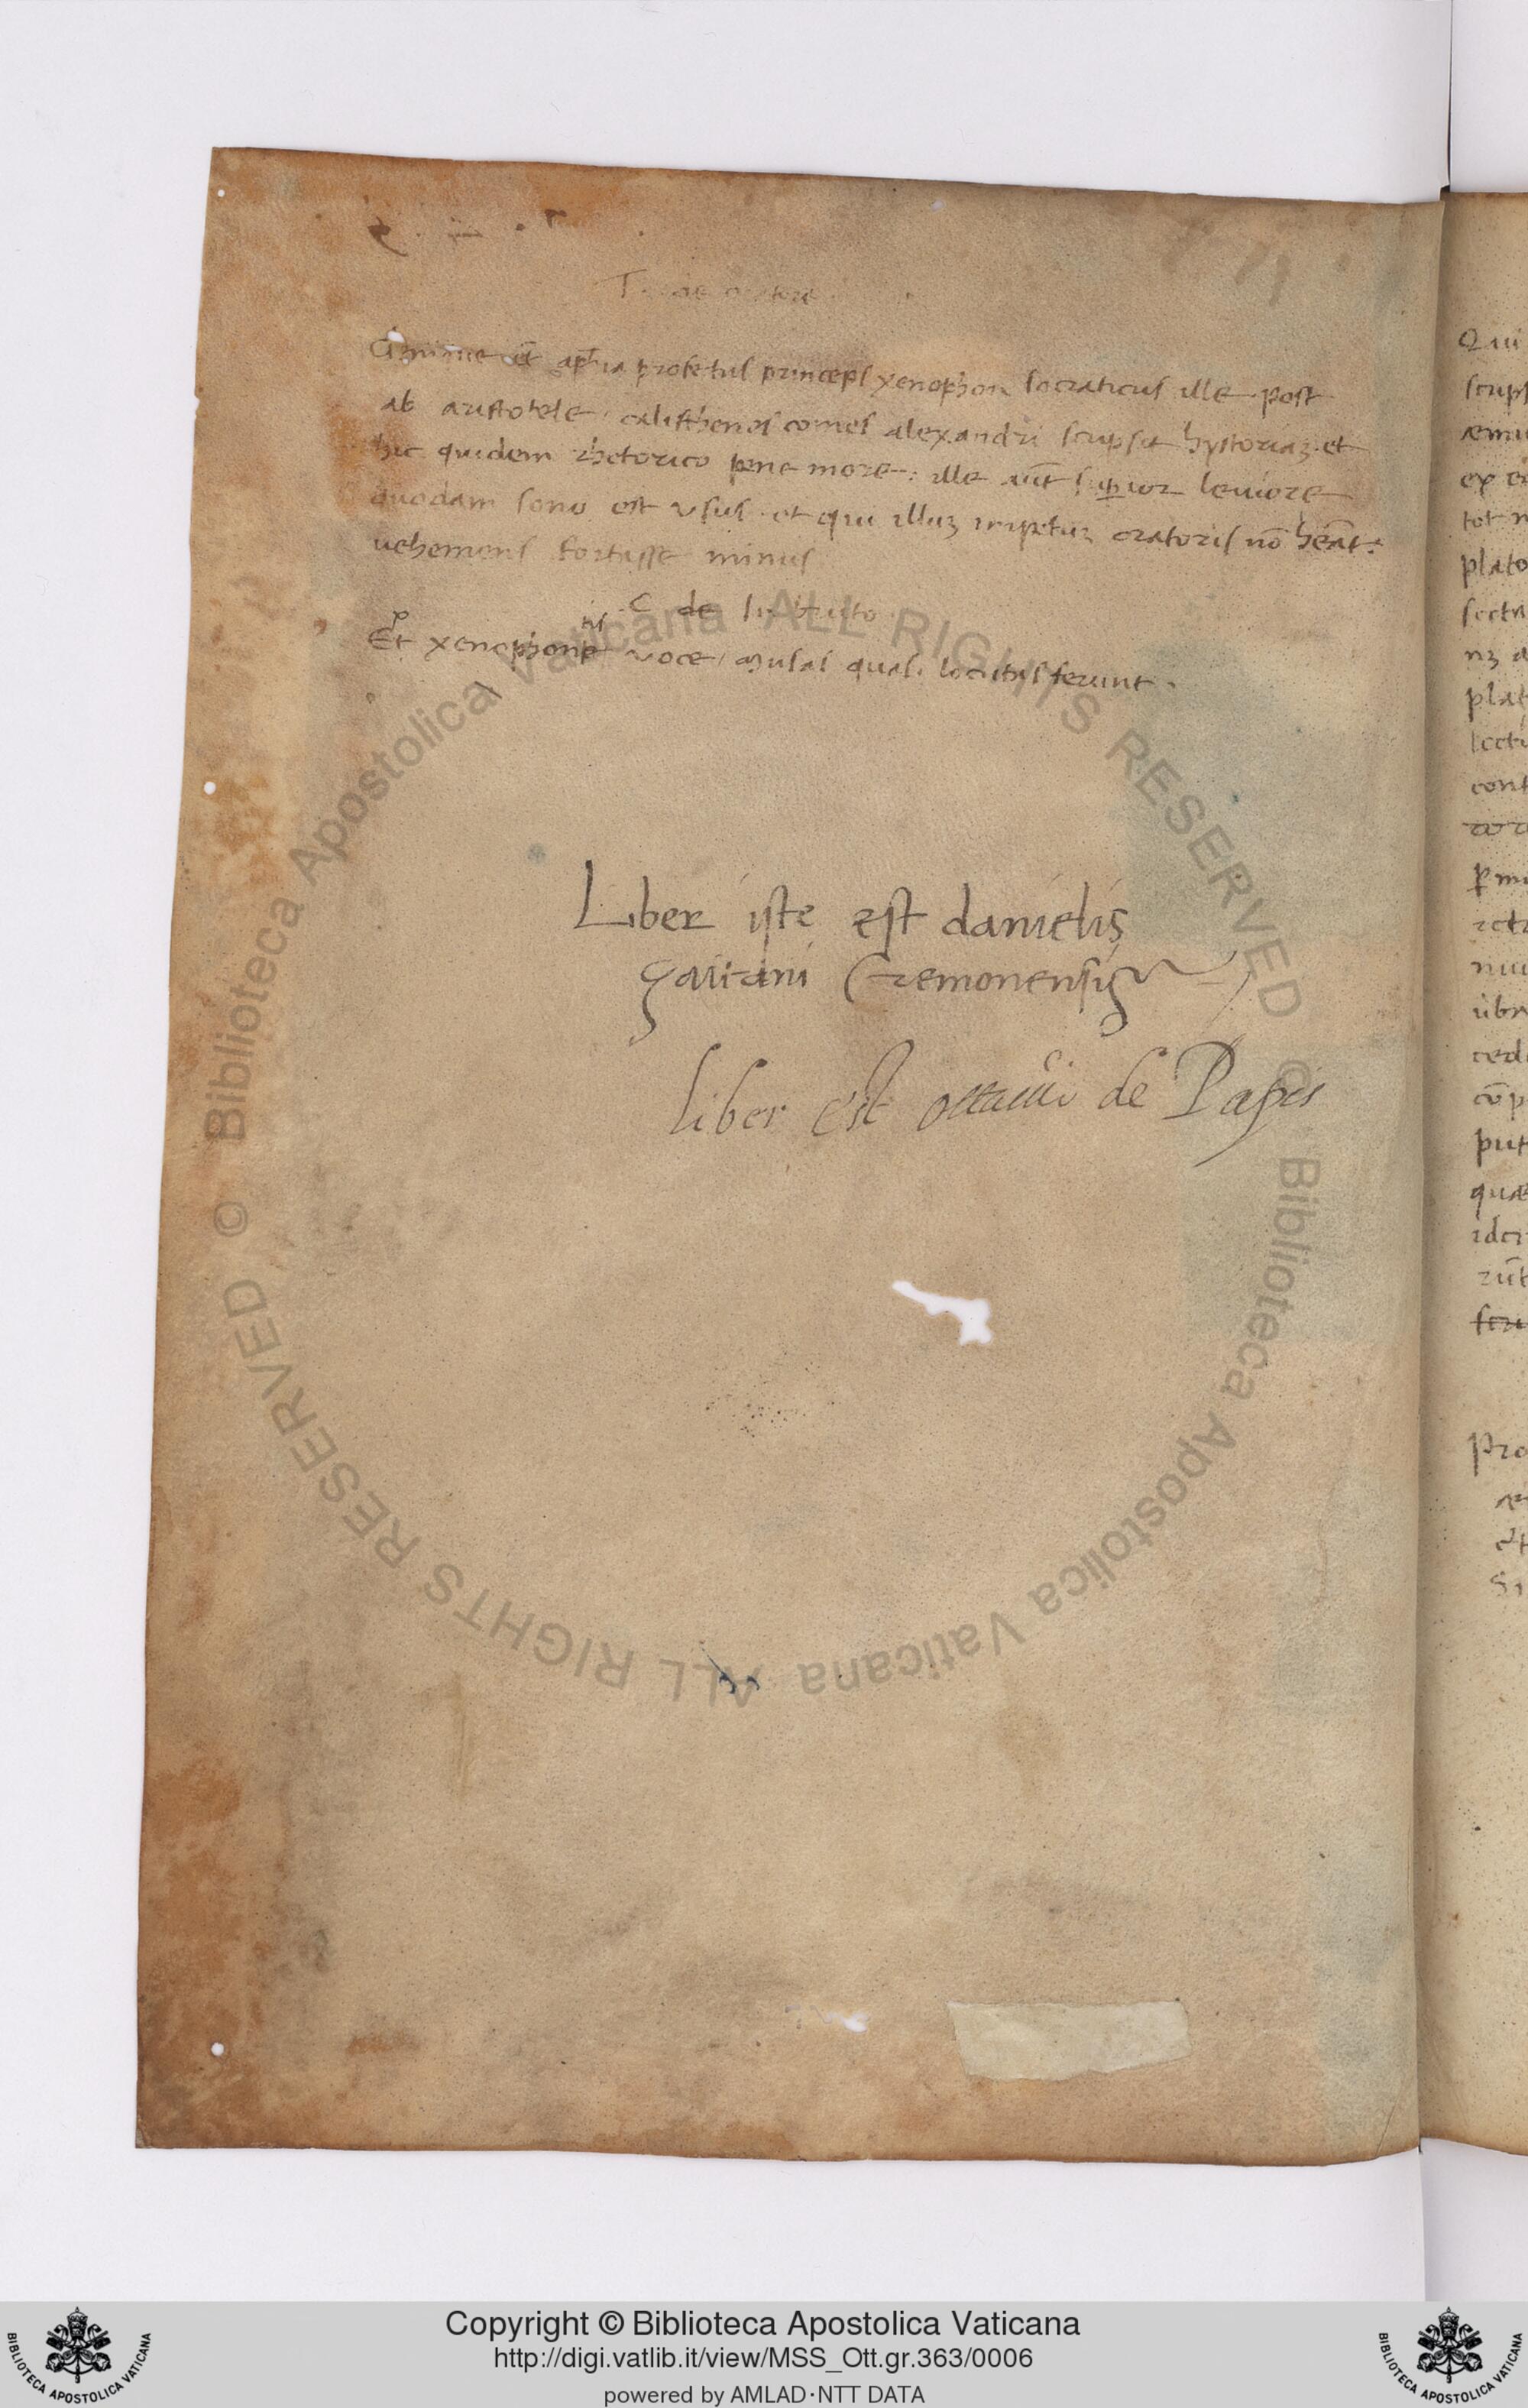 de oratore
et a phīa profectus princeps xenophon socraticus ille post
ab aristotele. calisthenes comes alexandri scripsit hystoriaȝ. et
hic quidem rhetorico pene more: ille aūt suꝑior leniore
quodam sono est usus. et qui illuȝ impetuȝ oratoris nō hēat:
uehemens fortasse minus
C de
Et xenophontis voce, musas quasi locutas ferunt.
Liber iste est danielis
gaitani Cremonensis
liber est octauii de Papis
Qui
scrips
æmu
ex
tot
plato
secta
nȝ
plat
lecti
cont
puta
quæ
rūt
Pro
Copyright © Biblioteca Apostolica Vaticana
http://digi.vatlib.it/view/MSS_Ott.gr.363/0006
powered by AMLAD·NTT DATA
BIBLIOTECA APOSTOLICA VATICANA
BIBLIOTECA APOSTOLICA VATICANA
© Biblioteca Apostolica Vaticana ALL RIGHTS RESERVED © Biblioteca Apostolica Vaticana ALL RIGHTS RESERVED